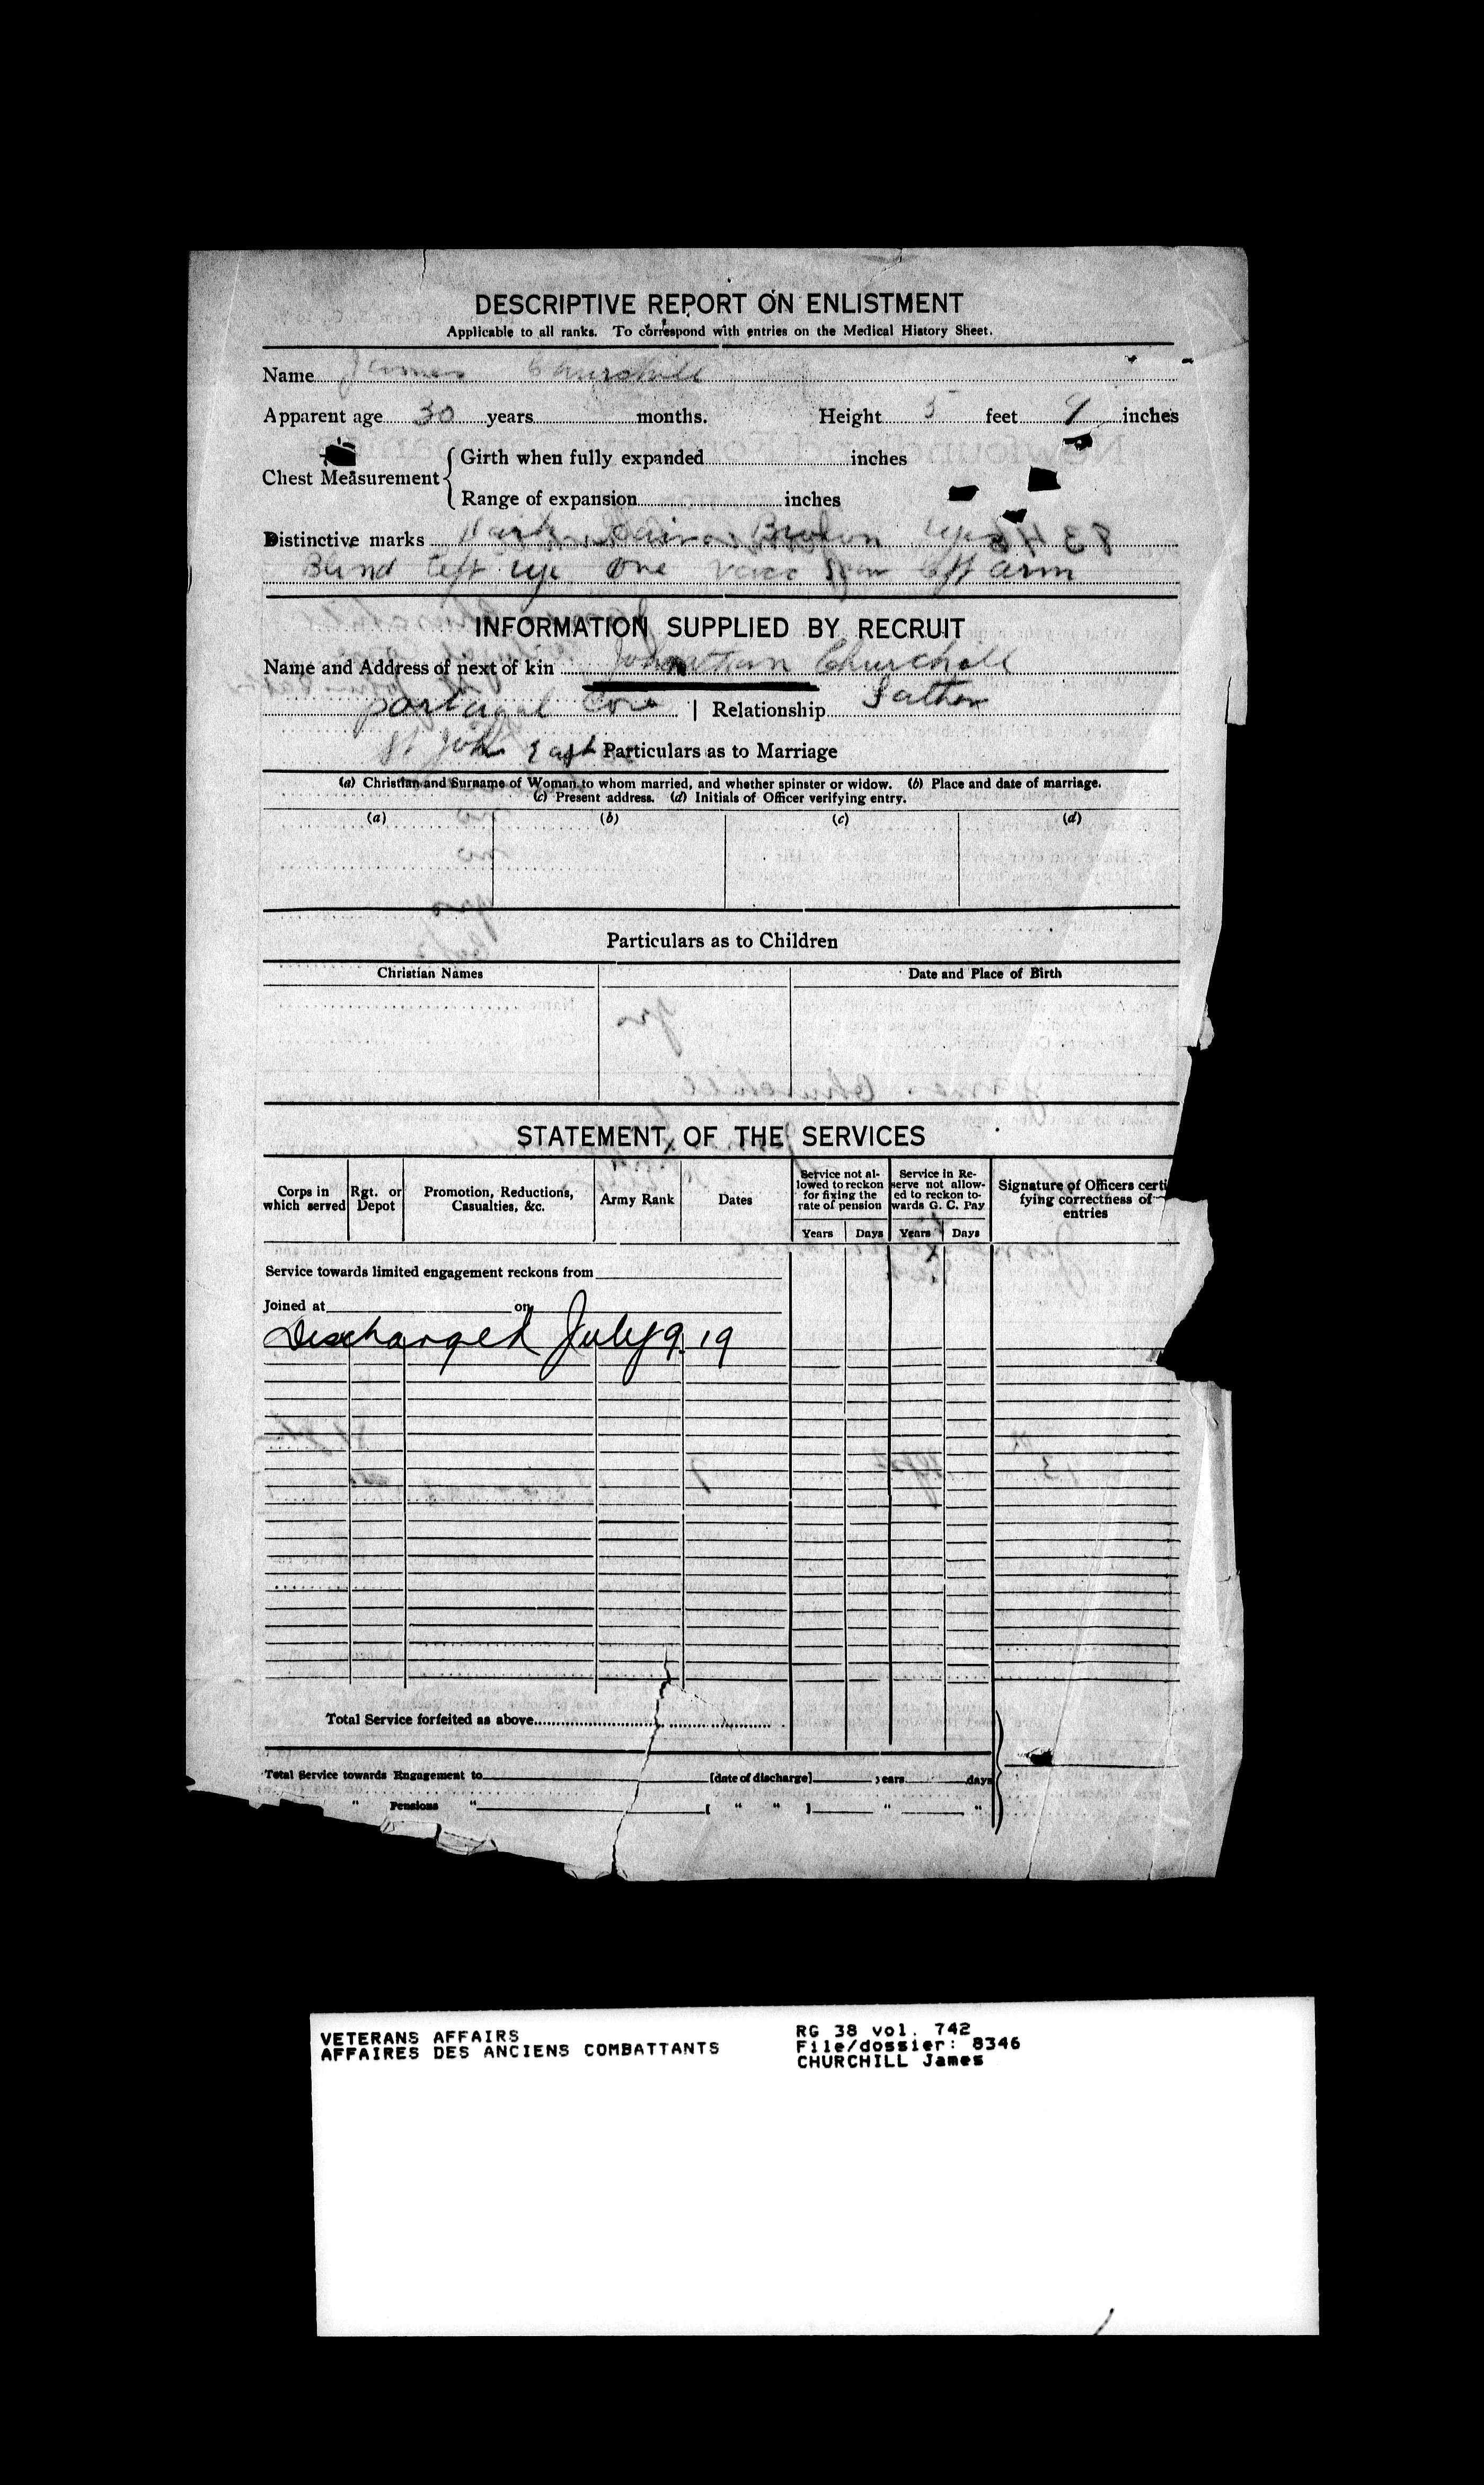 DESCRIPTIVE REPORT ON ENLISTMENT
Applicable to all ranks. To correspond with entries on the Medical History Sheet.
Name James Churchill
Apparent age 30 years months. Height 5 feet 9 inches
Chest Measurement { Girth when fully expanded inches
Range of expansion inches
Distinctive marks Dark hair Brown eyes
Blind left eye one vacc left arm
INFORMATION SUPPLIED BY RECRUIT
Name and Address of next of kin Johnathan Churchill
portugal Cove | Relationship Father
St John East Particulars as to Marriage
(a) Christian and Surname of Woman to whom married, and whether spinster or widow. (b) Place and date of marriage.
(c) Present address. (d) Initials of Officer verifying entry.
(a) (b) (c) (d)
Particulars as to Children
Christian Names Date and Place of Birth
STATEMENT OF THE SERVICES
Corps in which served Rgt. or Depot Promotion, Reductions, Casualties, &c. Army Rank Dates Service not allowed to reckon for fixing the rate of pension Service in Reserve not allowed to reckon towards G. C. Pay Signature of Officers certifying correctness of entries
Years Days Years Days
Service towards limited engagement reckons from
Joined at on
Discharged July 9. 19
Total Service forfeited as above
Total Service towards Engagement to [date of discharge] years days
" Pensions " [ " " ] " "
VETERANS AFFAIRS
AFFAIRES DES ANCIENS COMBATTANTS
RG 38 vol. 742
File/dossier: 8346
CHURCHILL James